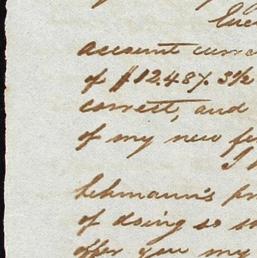 account curre
of $12.48 % 3½
correct, and
of my new fe
I
Lehmann's pr
of doing so s
offer you my